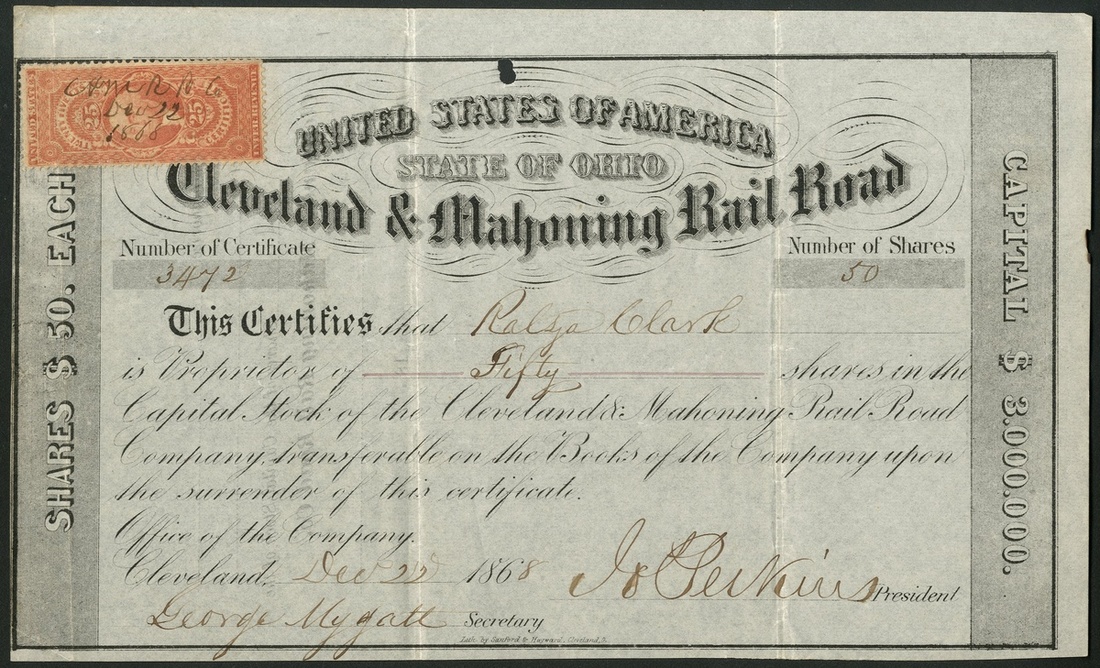 C & M R R Co
Dec 22
1868
25 25
UNITED STATES OF AMERICA
STATE OF OHIO
Cleveland & Mahoning Rail Road
Number of Certificate
3472
Number of Shares
50
SHARES $ 50. EACH
CAPITAL $ 3.000.000.
This Certifies that Ralza Clark
is Proprietor of Fifty shares in the
Capital Stock of the Cleveland & Mahoning Rail Road
Company, transferable on the Books of the Company upon
the surrender of this certificate.
Office of the Company.
Cleveland, Dec 22 1868
Jo Perkins President
George Mygatt Secretary
Lith. by Sanford & Hayward, Cleveland, O.